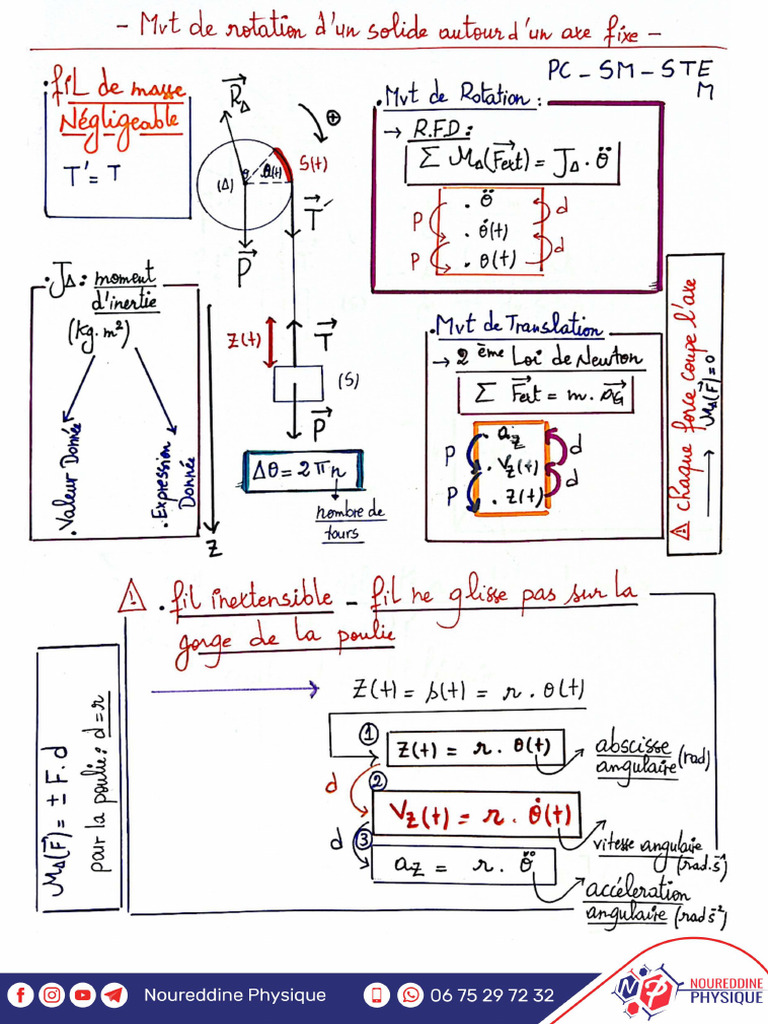 - Mvt de rotation d'un solide autour d'un axe fixe -
PC - SM - STE
M
. fil de masse
Négligeable
T' = T
R⃗Δ
⊕
S(t)
θ(t)
θ
(Δ)
T⃗'
P⃗
. Mvt de Rotation :
→ R.F.D :
Σ MΔ(F⃗ext) = JΔ . θ̈
. θ̈
. θ̇(t)
. θ(t)
P
P
d
d
. JΔ : moment
d'inertie
(kg.m²)
. Valeur Donnée
. Expression
Donnée
Z
Z(t)
T⃗
(S)
P⃗
Δθ = 2πn
nombre de
tours
. Mvt de Translation
→ 2ème Loi de Newton
Σ F⃗ext = m . a⃗G
. az
. Vz(t)
. Z(t)
P
P
d
d
⚠ chaque force coupe l'axe
→ MΔ(F⃗) = 0
⚠ . fil inextensible - fil ne glisse pas sur la
gorge de la poulie
Z(t) = s(t) = r . θ(t)
① Z(t) = r . θ(t)
abscisse
angulaire (rad)
d
② Vz(t) = r . θ̇(t)
vitesse angulaire
(rad.s⁻¹)
d
③ az = r . θ̈
accéleration
angulaire (rad s⁻²)
MΔ(F⃗) = ± F . d
pour la poulie : d = r
Noureddine Physique
06 75 29 72 32
NP
NOUREDDINE
PHYSIQUE